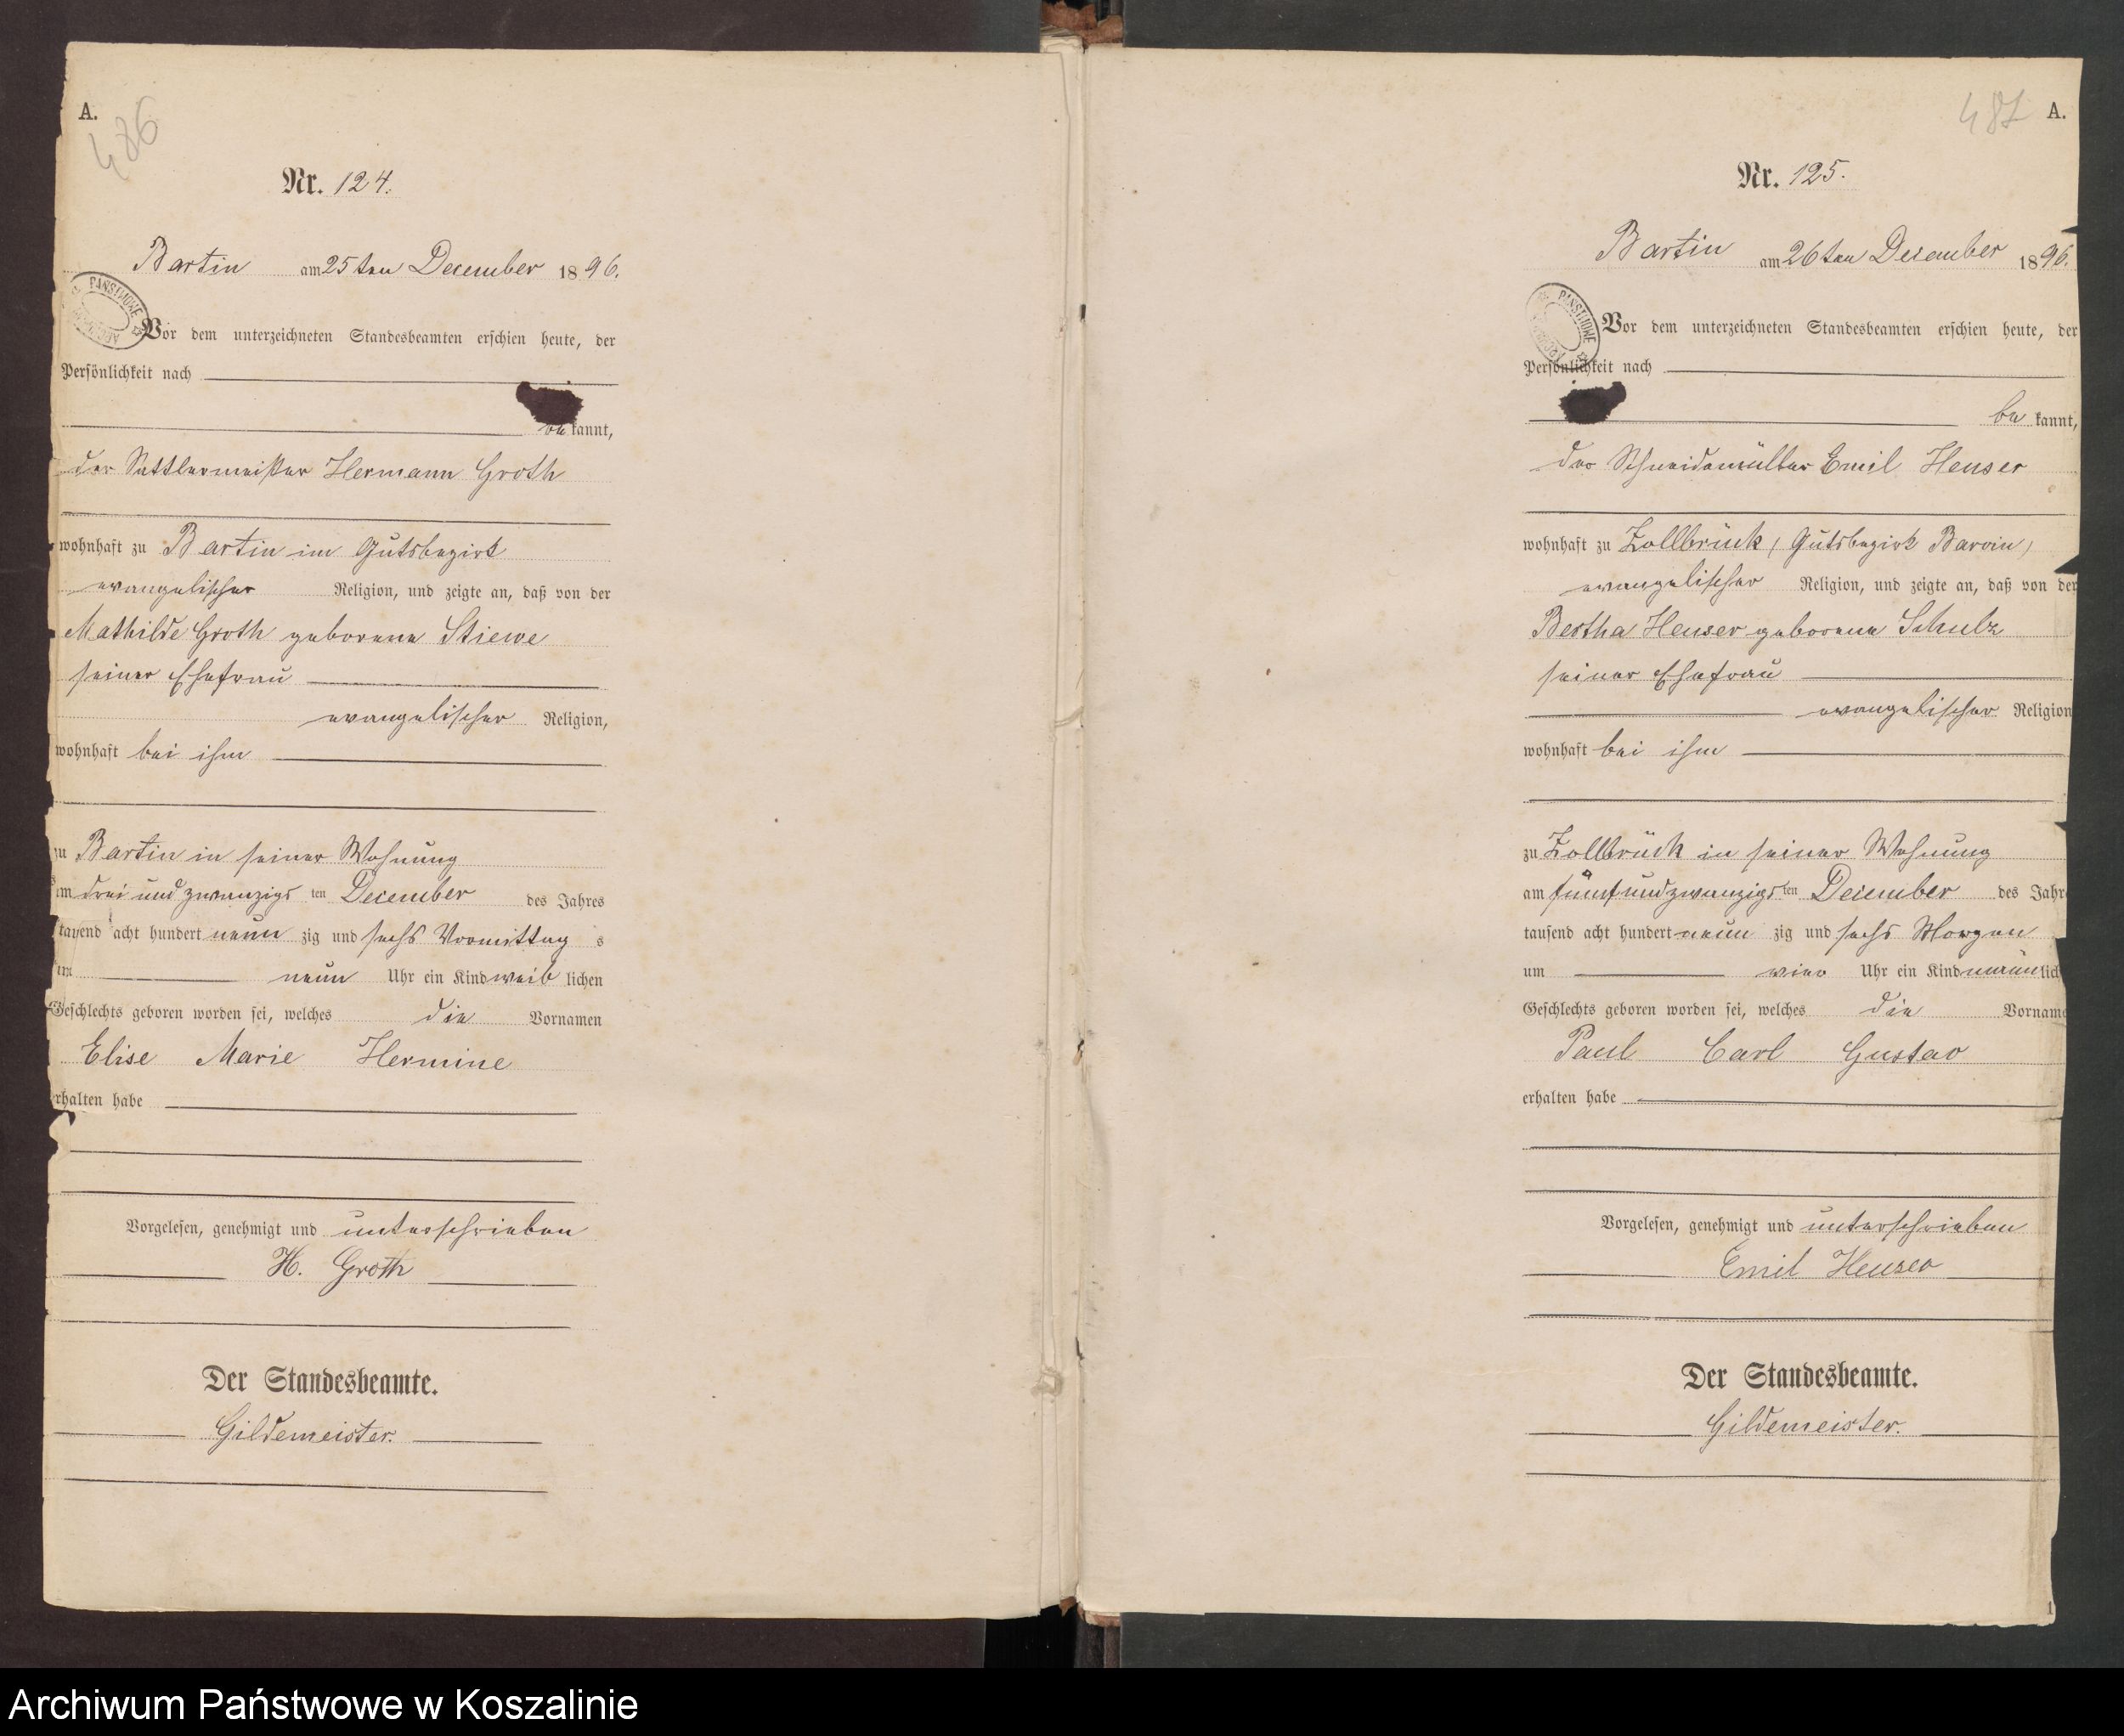 A.
486
Nr. 124.
Bartin am 25ten December 1896.
PAŃSTWOWE
Vor dem unterzeichneten Standesbeamten erschien heute, der
Persönlichkeit nach
be kannt,
der Sattlermeister Hermann Groth
wohnhaft zu Bartin im Gutsbezirk
evangelischer Religion, und zeigte an, daß von der
Mathilde Groth geborene Stiewe
seiner Ehefrau
evangelischer Religion,
wohnhaft bei ihm
zu Bartin in seiner Wohnung
am drei und zwanzigs ten December des Jahres
tausend acht hundert neun zig und sechs Vormittag s
um neun Uhr ein Kind weib lichen
Geschlechts geboren worden sei, welches die Vornamen
Elise Marie Hermine
erhalten habe
Vorgelesen, genehmigt und unterschrieben
H. Groth
Der Standesbeamte.
Gildemeister.
487 A.
Nr. 125.
Bartin am 26ten December 1896.
PAŃSTWOWE
Vor dem unterzeichneten Standesbeamten erschien heute, der
Persönlichkeit nach
be kannt,
der Schneidemüller Emil Heuser
wohnhaft zu Zollbrück (Gutsbezirk Barvin)
evangelischer Religion, und zeigte an, daß von der
Bertha Heuser geborene Schulz
seiner Ehefrau
evangelischer Religion
wohnhaft bei ihm
zu Zollbrück in seiner Wohnung
am fünf und zwanzigs ten December des Jahre
tausend acht hundert neun zig und sechs Morgen
um vier Uhr ein Kind männ lich
Geschlechts geboren worden sei, welches die Vorname
Paul Carl Gustav
erhalten habe
Vorgelesen, genehmigt und unterschrieben
Emil Heuser
Der Standesbeamte.
Gildemeister.
Archiwum Państwowe w Koszalinie